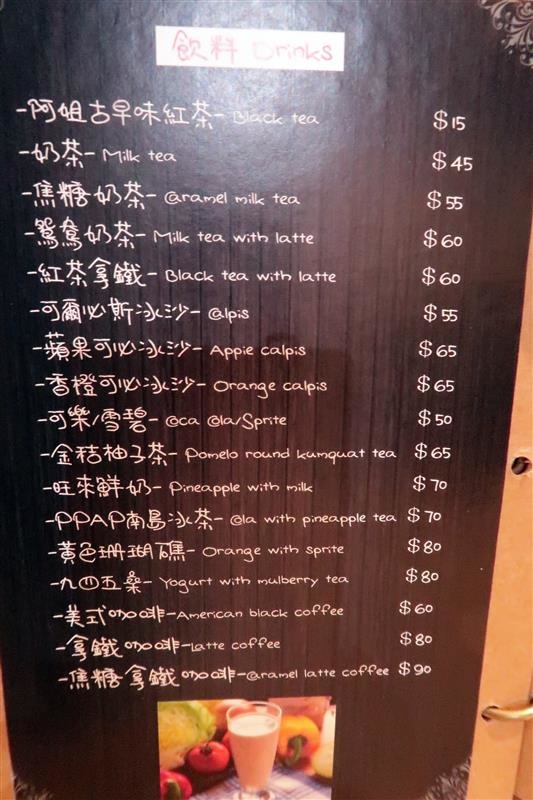 飲料 Drinks
-阿姐古早味紅茶- Black tea $15
-奶茶- Milk tea $45
-焦糖奶茶- Caramel milk tea $55
-鴛鴦奶茶- Milk tea with latte $60
-紅茶拿鐵- Black tea with latte $60
-可爾必斯冰沙- Calpis $55
-蘋果可必冰沙- Appie calpis $65
-香橙可必冰沙- Orange calpis $65
-可樂/雪碧- Coca Cola/Sprite $50
-金桔柚子茶- Pomelo round kumquat tea $65
-旺來鮮奶- Pineapple with milk $70
-PPAP南島冰茶- Cola with pineapple tea $70
-黃色珊瑚礁- Orange with sprite $80
-九四五桑- Yogurt with mulberry tea $80
-美式咖啡-American black coffee $60
-拿鐵咖啡-Latte coffee $80
-焦糖拿鐵咖啡-Caramel latte coffee $90